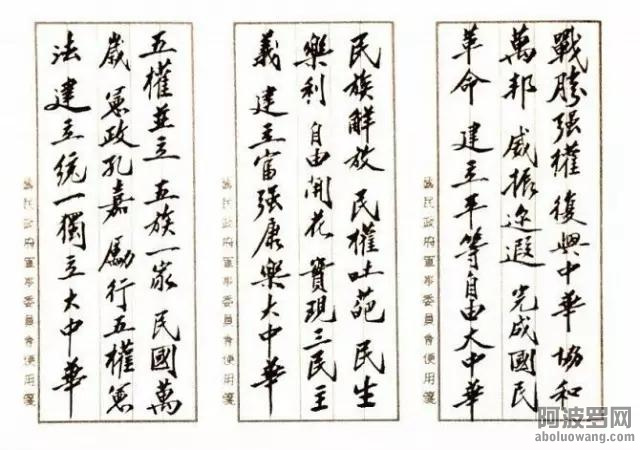 戰勝强權 復興中華 協和
萬邦 威振迩遐 完成國民
革命 建立平等自由大中華
國民政府軍事委員會便用箋
民族解放 民權吐葩 民生
樂利 自由開花 實現三民主
義 建立富强康樂大中華
國民政府軍事委員會便用箋
五權並立 五族一家 民國萬
歲 憲政孔嘉 勵行五權憲
法 建立統一獨立大中華
國民政府軍事委員會便用箋
阿波罗网
aboluowang.com